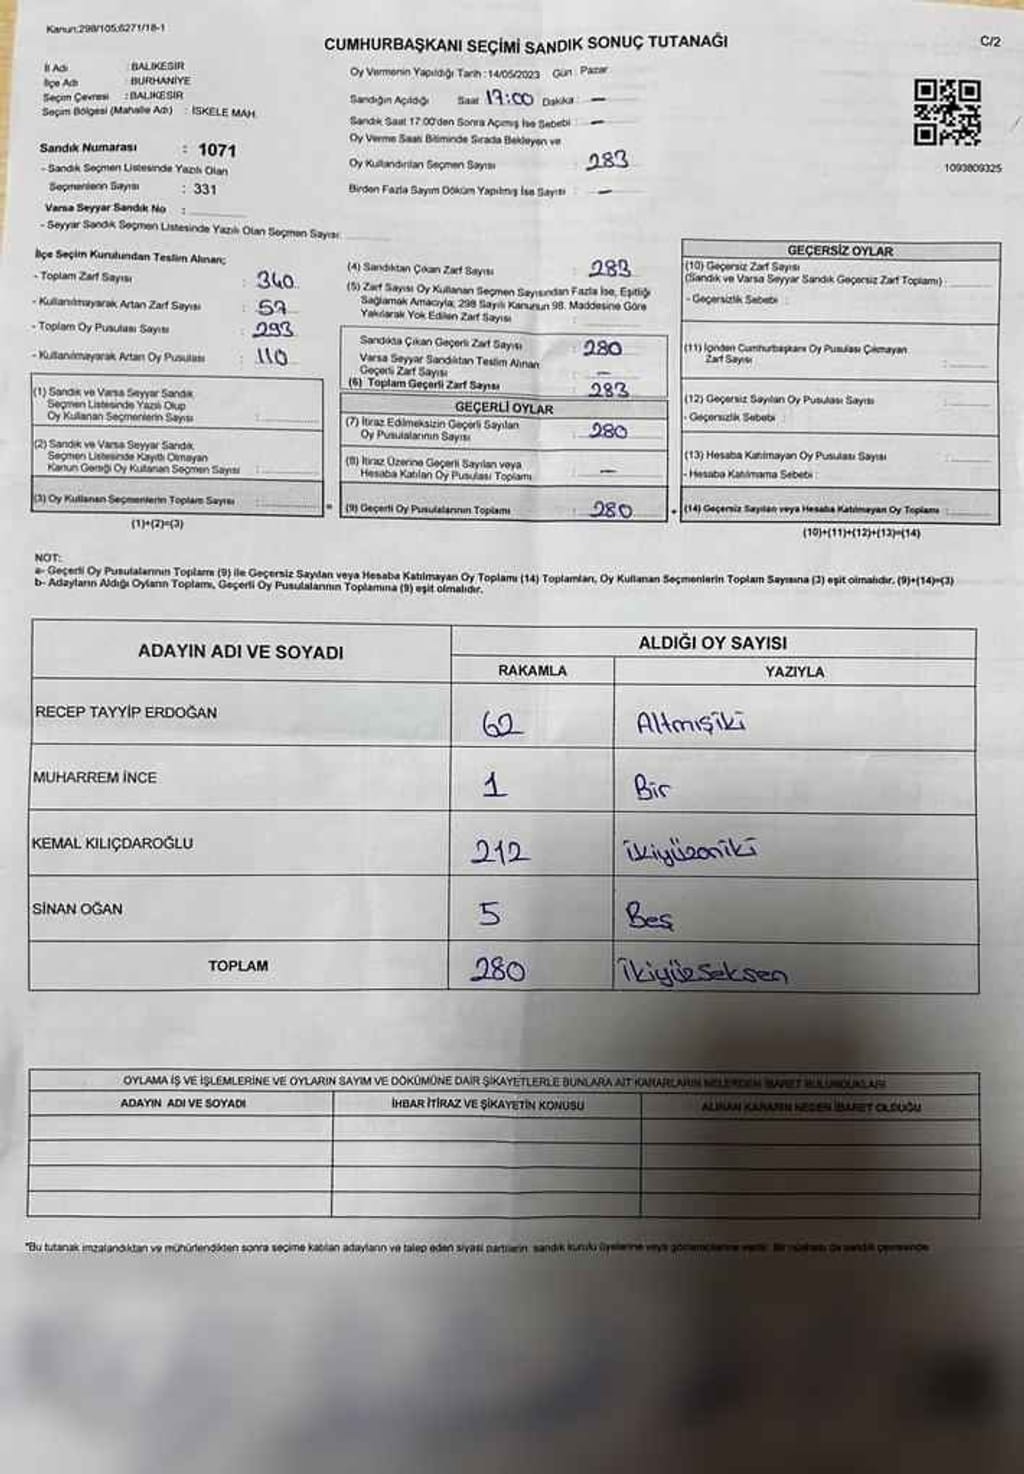 Kanun:298/105;6271/18-1
CUMHURBAŞKANI SEÇİMİ SANDIK SONUÇ TUTANAĞI
C/2
İl Adı : BALIKESİR
İlçe Adı : BURHANİYE
Seçim Çevresi : BALIKESİR
Seçim Bölgesi (Mahalle Adı) : İSKELE MAH.
Sandık Numarası : 1071
- Sandık Seçmen Listesinde Yazılı Olan
Seçmenlerin Sayısı : 331
Varsa Seyyar Sandık No :
- Seyyar Sandık Seçmen Listesinde Yazılı Olan Seçmen Sayısı:
Oy Vermenin Yapıldığı Tarih : 14/05/2023 Gün : Pazar
Sandığın Açıldığı Saat 17:00 Dakika : —
Sandık Saat 17:00'den Sonra Açımış İse Sebebi : —
Oy Verme Saati Bitiminde Sırada Bekleyen ve
Oy Kullandırılan Seçmen Sayısı : 283
Birden Fazla Sayım Döküm Yapılmış İse Sayısı : —
1093809325
İlçe Seçim Kurulundan Teslim Alınan;
- Toplam Zarf Sayısı : 340
- Kullanılmayarak Artan Zarf Sayısı : 57
- Toplam Oy Pusulası Sayısı : 293
- Kullanılmayarak Artan Oy Pusulası : 110
(1) Sandık ve Varsa Seyyar Sandık
Seçmen Listesinde Yazılı Olup
Oy Kullanan Seçmenlerin Sayısı :
(2) Sandık ve Varsa Seyyar Sandık
Seçmen Listesinde Kayıtlı Olmayan
Kanun Gereği Oy Kullanan Seçmen Sayısı :
(3) Oy Kullanan Seçmenlerin Toplam Sayısı :
(1)+(2)=(3)
(4) Sandıktan Çıkan Zarf Sayısı : 283
(5) Zarf Sayısı Oy Kullanan Seçmen Sayısından Fazla İse, Eşitliği
Sağlamak Amacıyla; 298 Sayılı Kanunun 98. Maddesine Göre
Yakılarak Yok Edilen Zarf Sayısı :
Sandıkta Çıkan Geçerli Zarf Sayısı : 280
Varsa Seyyar Sandıktan Teslim Alınan
Geçerli Zarf Sayısı : —
(6) Toplam Geçerli Zarf Sayısı : 283
GEÇERLİ OYLAR
(7) İtiraz Edilmeksizin Geçerli Sayılan
Oy Pusulalarının Sayısı : 280
(8) İtiraz Üzerine Geçerli Sayılan veya
Hesaba Katılan Oy Pusulası Toplamı : —
= (9) Geçerli Oy Pusulalarının Toplamı : 280
GEÇERSİZ OYLAR
(10) Geçersiz Zarf Sayısı
(Sandık ve Varsa Seyyar Sandık Geçersiz Zarf Toplamı) :
- Geçersizlik Sebebi :
(11) İçinden Cumhurbaşkanı Oy Pusulası Çıkmayan
Zarf Sayısı :
(12) Geçersiz Sayılan Oy Pusulası Sayısı :
- Geçersizlik Sebebi :
(13) Hesaba Katılmayan Oy Pusulası Sayısı :
- Hesaba Katılmama Sebebi :
+ (14) Geçersiz Sayılan veya Hesaba Katılmayan Oy Toplamı :
(10)+(11)+(12)+(13)=(14)
NOT:
a- Geçerli Oy Pusulalarının Toplamı (9) ile Geçersiz Sayılan veya Hesaba Katılmayan Oy Toplamı (14) Toplamları, Oy Kullanan Seçmenlerin Toplam Sayısına (3) eşit olmalıdır. (9)+(14)=(3)
b- Adayların Aldığı Oyların Toplamı, Geçerli Oy Pusulalarının Toplamına (9) eşit olmalıdır.
ADAYIN ADI VE SOYADI
ALDIĞI OY SAYISI
RAKAMLA YAZIYLA
RECEP TAYYİP ERDOĞAN 62 Altmışiki
MUHARREM İNCE 1 Bir
KEMAL KILIÇDAROĞLU 212 ikiyüzoniki
SİNAN OĞAN 5 Beş
TOPLAM 280 İkiyüzseksen
OYLAMA İŞ VE İŞLEMLERİNE VE OYLARIN SAYIM VE DÖKÜMÜNE DAİR ŞİKAYETLERLE BUNLARA AİT KARARLARIN NELERDEN İBARET BULUNDUKLARI
ADAYIN ADI VE SOYADI İHBAR İTİRAZ VE ŞİKAYETİN KONUSU ALINAN KARARIN NEDEN İBARET OLDUĞU
*Bu tutanak imzalandıktan ve mühürlendikten sonra seçime katılan adayların ve talep eden siyasi partilerin sandık kurulu üyelerine veya